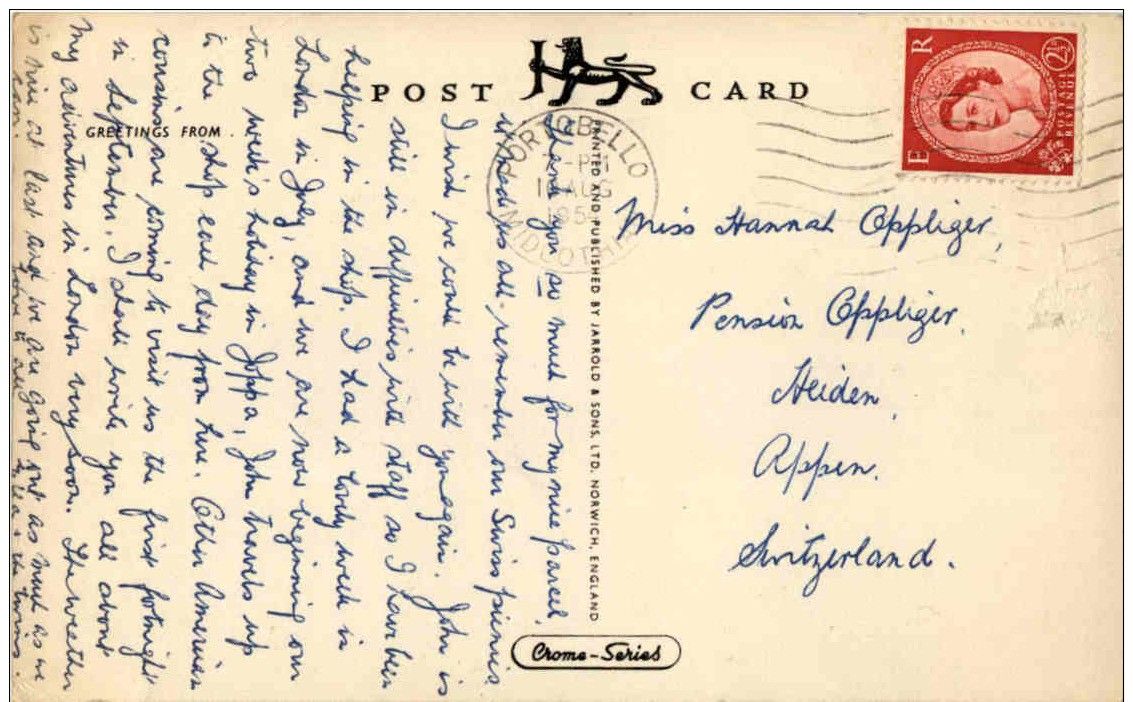 POST CARD
GREETINGS FROM
PORTOBELLO
PM
AUG
MIDLOTHIAN
E R
2½D
POSTAGE
REVENUE
PRINTED AND PUBLISHED BY JARROLD & SONS, LTD. NORWICH, ENGLAND
Crome-Series
Thank you so much for my nice parcel,
indeed us all remember our Swiss friends
I wish we could be with you again. John is
still in difficulties with staff so I have been
helping in the shop. I had a lovely week in
London in July, and we are now beginning our
two week's holiday in Joppa, John travels up
to the shop each day from here. Other American
cousins are coming to visit us the first fortnight
in September. I shall write you all about
my adventures in London very soon. The weather
is nice at last and we are going out as much as we
can.
Love to all
Miss Hannah Oppliger,
Pension Oppliger,
Heiden,
Appen.
Switzerland.